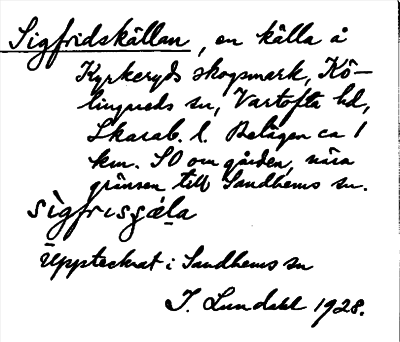 Sigfridskällan, en källa å
Kyrkeryds skogsmark, Kö-
lingareds sn, Vartofta hd,
Skarab. l. Belägen ca 1
km. SO om gården, nära
gränsen till Sandhems sn.
sìgfrisɕä́la
Uppteckat i Sandhems sn
I. Lundahl 1928.